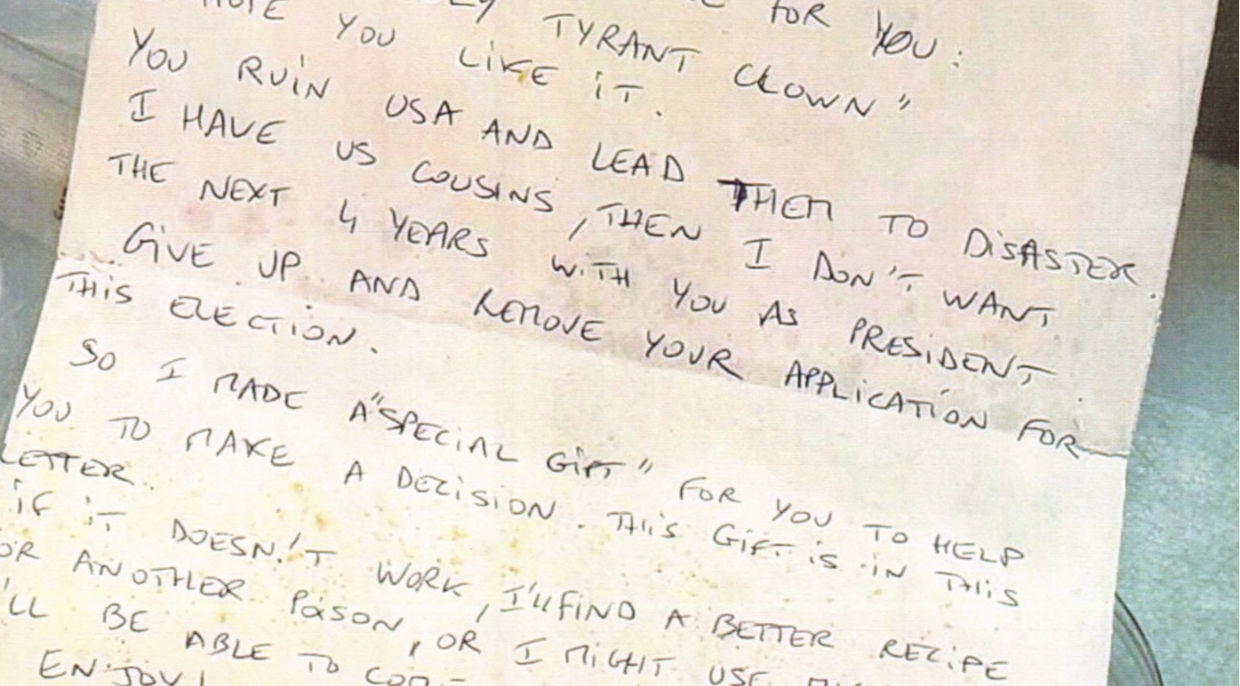 FOR YOU:
TYRANT CLOWN"
HOPE YOU LIKE IT.
YOU RUIN USA AND LEAD THEM TO DISASTER.
I HAVE US COUSINS, THEN I DON'T WANT
THE NEXT 4 YEARS WITH YOU AS PRESIDENT.
GIVE UP AND REMOVE YOUR APPLICATION FOR
THIS ELECTION.
SO I MADE A "SPECIAL GIFT" FOR YOU TO HELP
YOU TO MAKE A DECISION. THIS GIFT IS IN THIS
LETTER.
IF IT DOESN'T WORK, I'll FIND A BETTER RECIPE
OR ANOTHER POISON, OR I MIGHT USE
'LL BE ABLE TO COME
ENJOY!